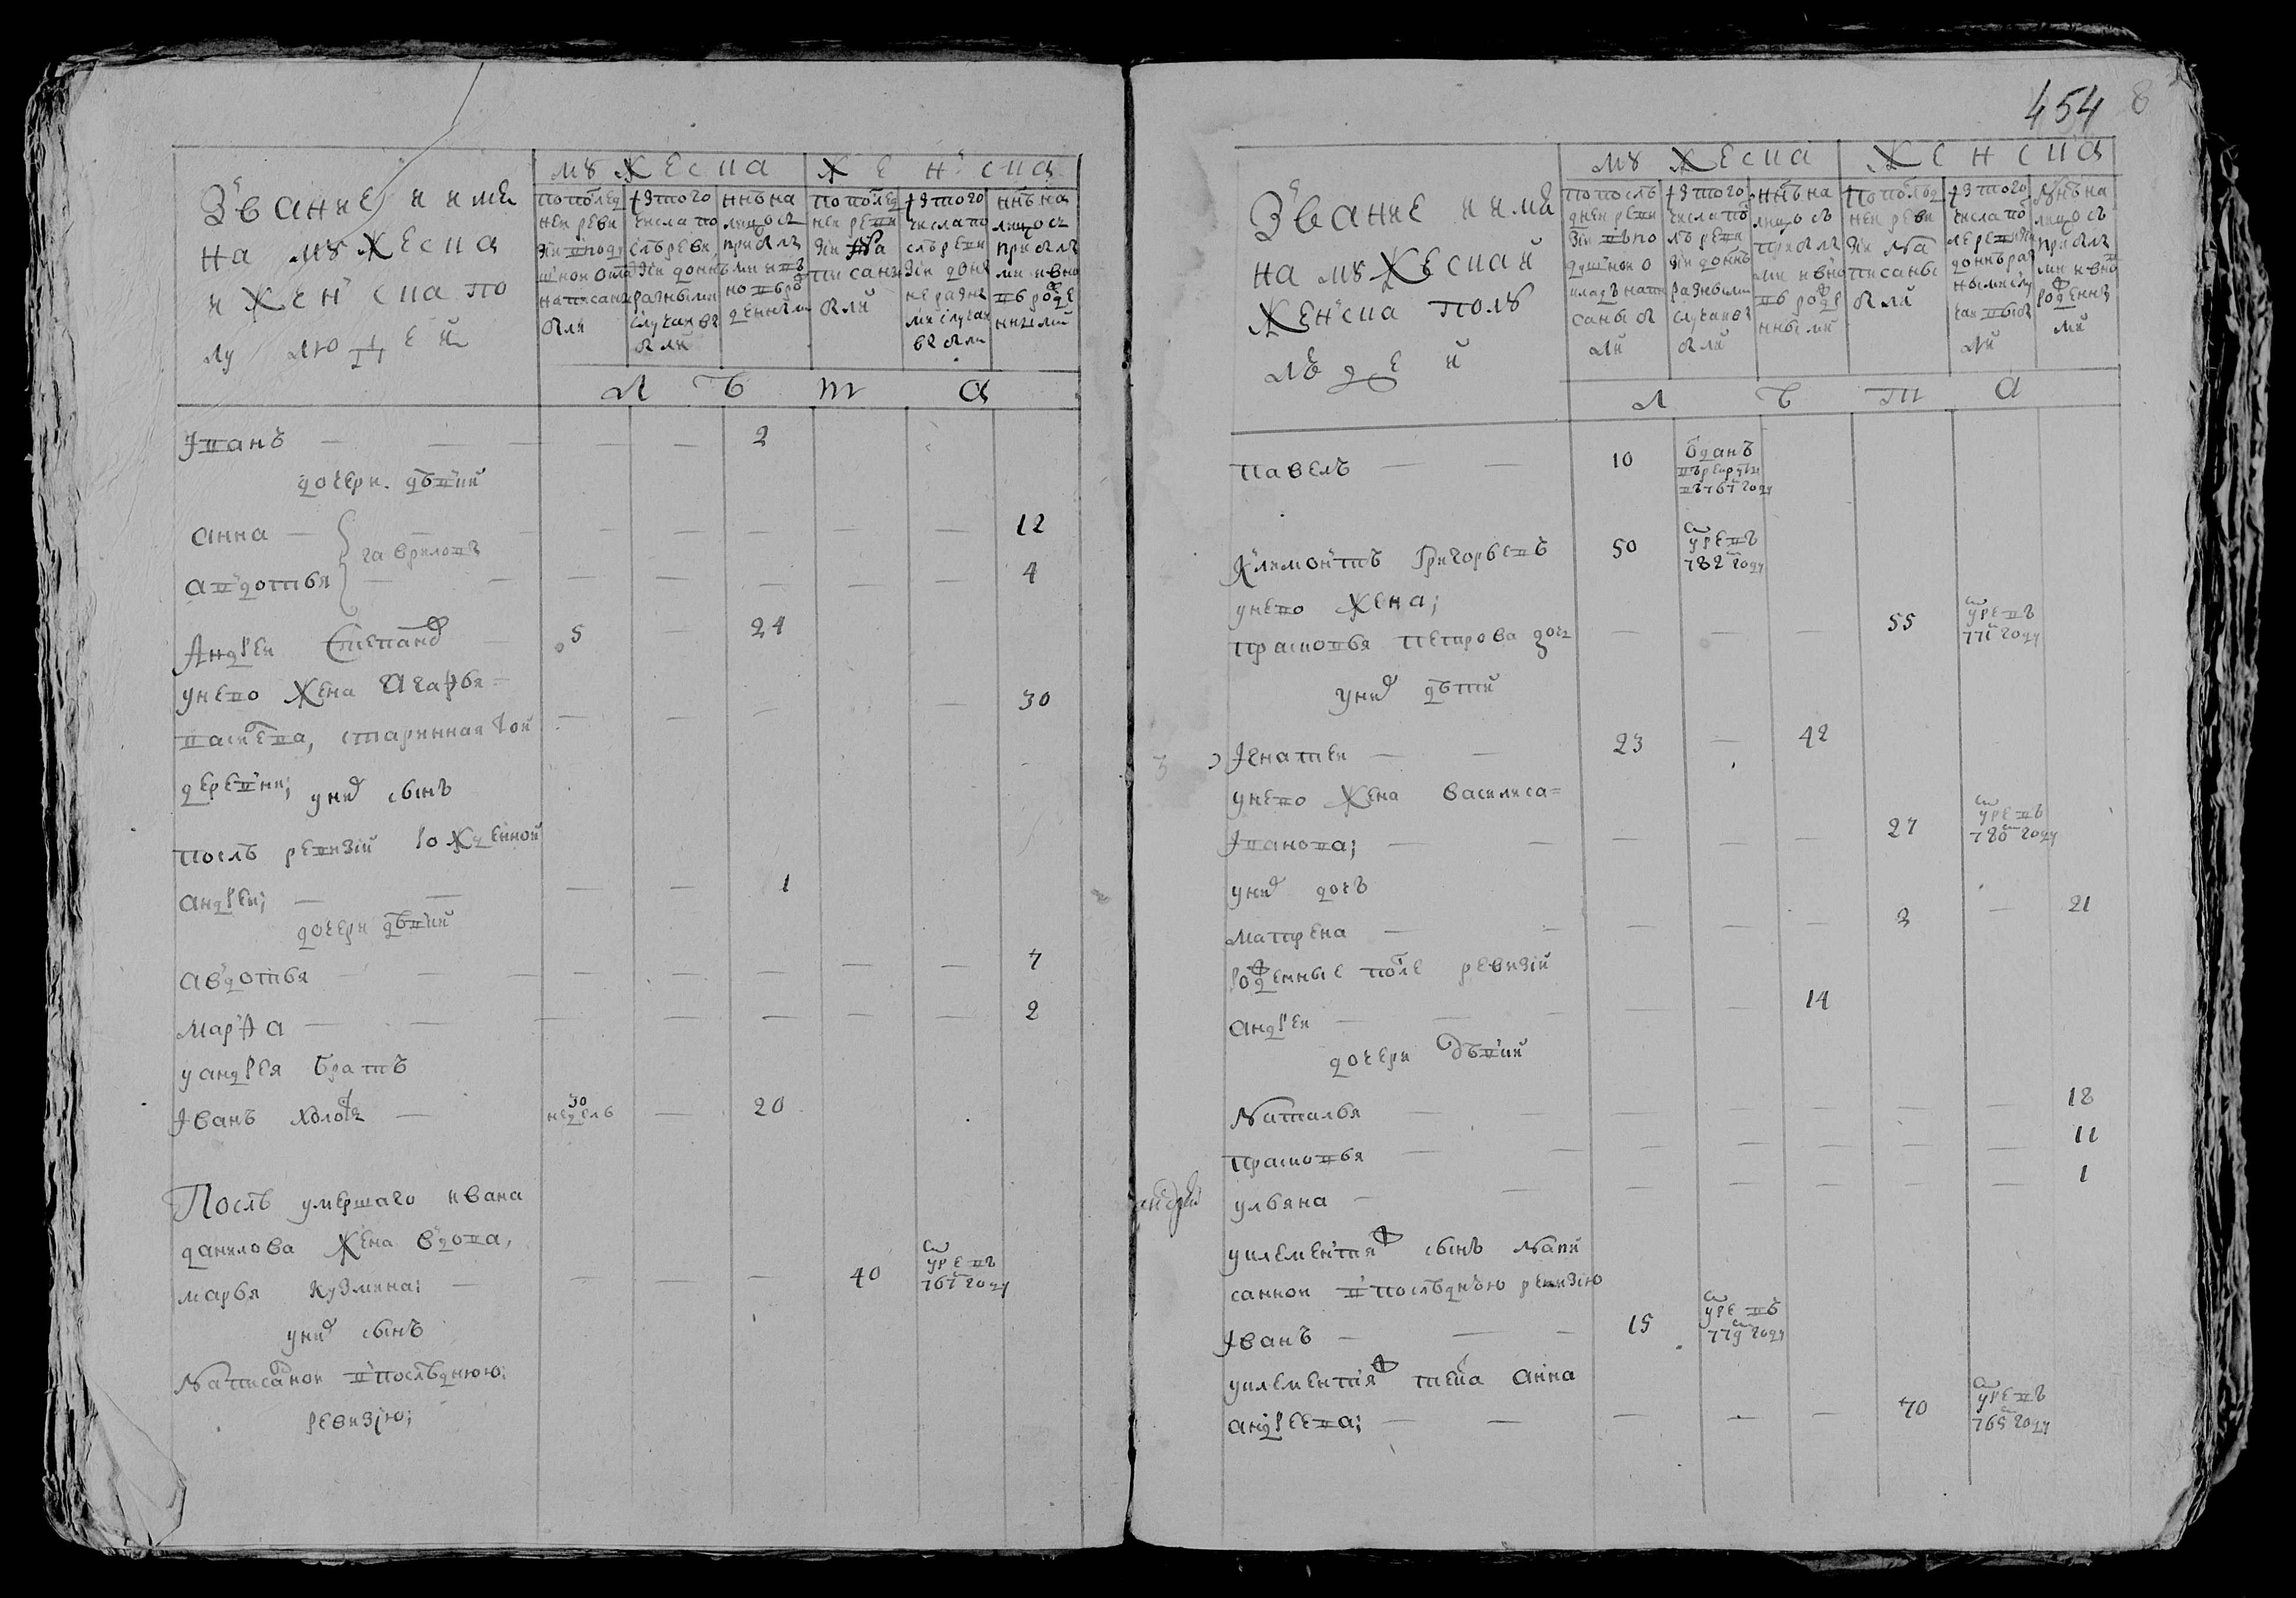 454 8
Звание и имѧ
на мꙋжеска
и женска по
лу людей
мꙋжеска
женска
по послед
ней реви
зіи в поду
шной окла
написаны
были
из того
числа по
слѣ реви
зіи до ннѣ
разными
случаи вы
были
ннѣ на
лицо съ
прибылы
ми и въ
но въ ро
жденным
по послед
ней реви
зіи на
писаны
были
из того
числа по
слѣ реви
зіи до нн
не разны
ми случаи
вы были
ннѣ на
лицо съ
прибылы
ми и вно
въ рожде
нными
Лѣта
Іванъ — — — — — 2
дочери девки
анна — — — — — — 12
гавриловы
авдотья — — — — — — 4
Андреи Степанов — 5 — 24
у него жена Агафья
васильева, стариннаѧ той — — — — 30
деревни; у них сынъ
послѣ ревизіи рожденной
андреи; — — — — 1
дочери девки
авдотья — — — — — — 7
марѳа — — — — — — 2
у андрея братъ
Іванъ холост — 30 недель — 20
Послѣ умершаго ивана
данилова жена вдова,
марья кузмина; — — — — 40 умре въ 767 году
у них сынъ
написанной в последнюю;
ревизію;
Звание и имѧ
на мꙋжеска и
женска полꙋ
людей
мꙋжеска
женска
по послѣ
дней реви
зіи въ по
душной о
кладъ напи
саны бы
ли
из того
числа по
слѣ реви
зіи до ннѣ
разными
случаи вы
были
ннѣ на
лицо съ
прибылы
ми и вно
въ рожде
нными
по послед
ней реви
зіи на
писаны
были
из того
числа по
сле ревизіи
до ннѣ раз
ными слу
чаи выбы
ли
ннѣ на
лицо съ
прибылы
ми и вно
рожденны
ми
Лѣта
павелъ — — 10 отданъ въ рекруты въ 767 году
Климонтъ Григорьевъ 50 умре въ 782 году
у него жена;
прасковья петрова дочь — — — 55 умре въ 771 году
у них дети
3 Ігнатеи — — 23 — 42
у него жена василиса
Іванова; — — — — — 27 умре въ 780 году
у них дочь
матрена — — — — — 3 — 21
рожденные после ревизіи
андреи — — — — — 14
дочери девки
Наталья — — — — — — — 18
прасковья — — — — — — — 11
андреи
ульяна — — — — — — — 1
у клементия сынъ напи
санной в последнюю ревизію
Іванъ — — — 15 умре въ 779 году
у клементия теща анна
андреева; — — — — — 70 умре въ 765 году